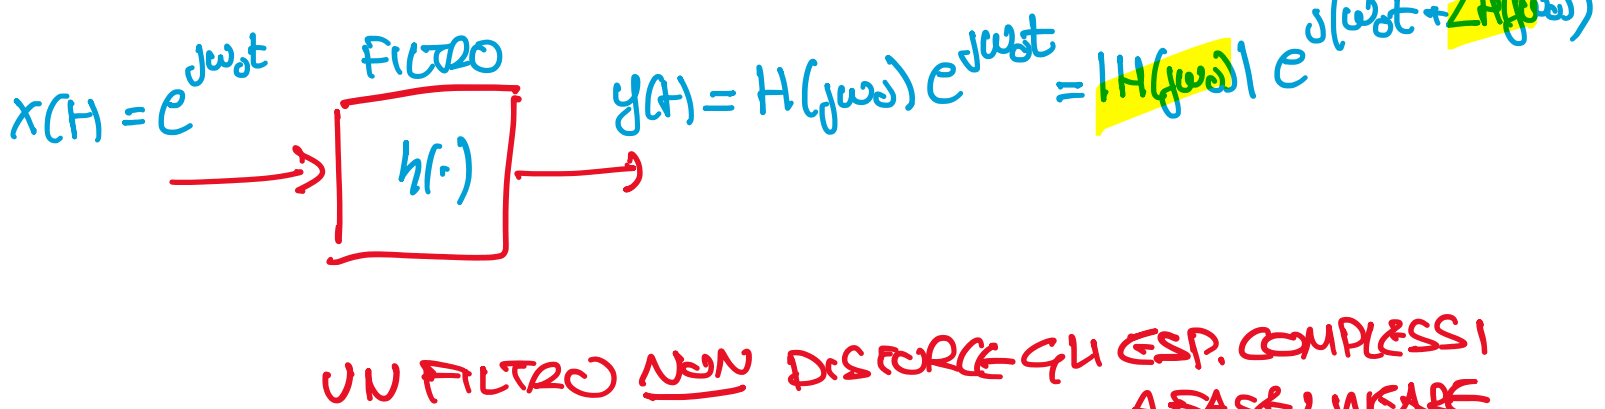 x(t) = e^{jω₀t}
FILTRO
h(·)
y(t) = H(jω₀) e^{jω₀t} = |H(jω₀)| e^{j(ω₀t + ∠H(jω₀))}
UN FILTRO NON DISTORCE GLI ESP. COMPLESSI
A FASE LINEARE